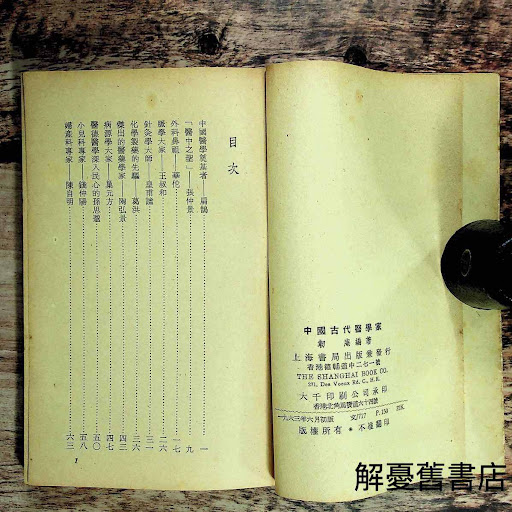 目次
中國醫學奠基者——扁鵲……一
「醫中之聖」——張仲景……九
外科鼻祖——華佗……一七
脈學大家——王叔和……二六
針灸學大師——皇甫謐……三一
化學製藥的先驅——葛洪……
傑出的醫藥學家——陶弘景……四三
病源學大家——巢元方……四七
醫德醫學深入民心的孫思邈……五〇
小兒科專家——錢仲陽……五八
婦產科專家——陳自明……六三
1
中國古代醫學家
編著
上海書局出版兼發行
香港德輔道中二七一號
THE SHANGHAI BOOK CO.
271, Des Voeux Rd. C., H.K.
大千印刷公司承印
香港北角馬寶道六十四號
一九六三年六月初版 文/717 P.150 HK.
版權所有 * 不准翻印
解憂舊書店